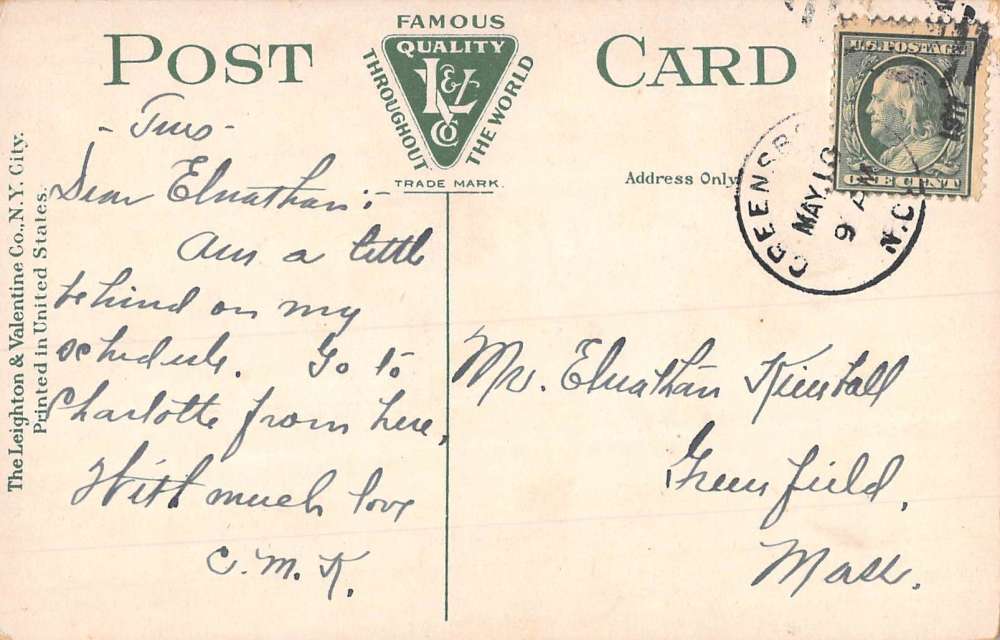 POST CARD
FAMOUS
QUALITY
THROUGHOUT THE WORLD
L & V Co
TRADE MARK.
Address Only
U.S. POSTAGE
ONE CENT
GREENSBO
MAY 18
9 AM
1911
N.C.
The Leighton & Valentine Co., N.Y. City.
Printed in United States.
- Tues -
Dear Elnathan:-
Am a little
behind on my
schedule. Go to
Charlotte from here.
With much love
C. M. K.
Mr. Elnathan Kimball
Greenfield,
Mass.